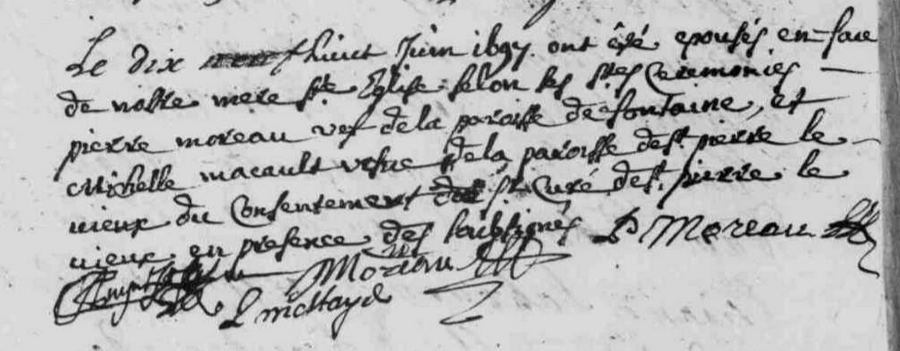 Le dix huict Juin 1697 ont esté epousés en face
de nostre mere ste Eglise selon ses stes Ceremonies
pierre moreau vef de la paroisse de fontaine, et
Michelle macault vefue de la paroisse de st pierre le
vieux du Consentement du sr Curé de st pierre le
vieux en presence des soubsignés P Moreau
Moreau